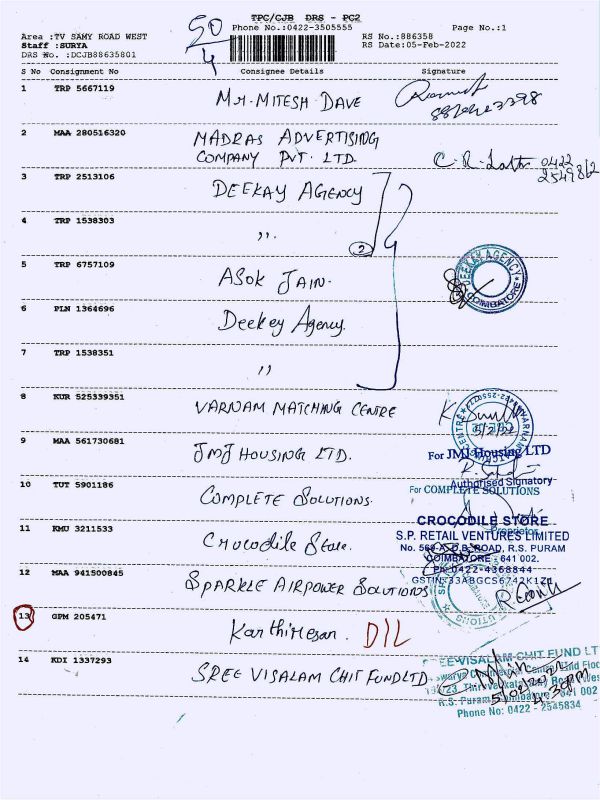 TPC/CJB DRS - PC2
50/4
Phone No.:0422-3505555
Page No.:1
Area :TV SAMY ROAD WEST
RS No.:886358
Staff :SURYA
RS Date:05-Feb-2022
DRS No. :DCJB88635801
S No Consignment No Consignee Details Signature
1 TRP 5667119 Mr. MITESH DAVE
2 MAA 280516320 MADRAS ADVERTISING
COMPANY PVT. LTD.
0422
2549862
3 TRP 2513106 DEEKAY AGENCY
4 TRP 1538303 ,,
2
5 TRP 6757109 ASOK JAIN.
DEEKAY AGENCY
COIMBATORE
6 PLN 1364696 Deekey Agency
7 TRP 1538351 ,,
8 KUR 525339351 VARNAM MATCHING CENTRE
5/2/22
9 MAA 561730681 JMJ HOUSING LTD.
For JMJ Housing LTD
Authorised Signatory
10 TUT 5901186 COMPLETE SOLUTIONS.
For COMPLETE SOLUTIONS
Proprietor
11 KMU 3211533 Crocodile Store.
CROCODILE STORE
S.P. RETAIL VENTURES LIMITED
D.B. ROAD, R.S. PURAM
COIMBATORE - 641 002.
Ph:0422-4368844
GSTIN:33ABGCS6742K1Z1
12 MAA 941500845 SPARKLE AIRPOWER SOLUTIONS
13 GPM 205471 Karthiresan. DIL
14 KDI 1337293 SREE VISALAM CHIT FUND LTD
VISALAM CHIT FUND LT
R.S. Puram, Coimbatore - 641 002
Phone No: 0422 - 2545834
5/02/2022
4:30pm